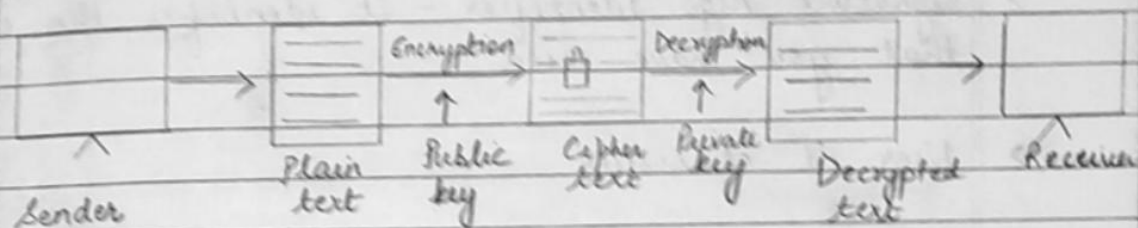 Encryption
Decryption
Plain
text
Public
key
Cipher
text
Private
key
Decrypted
text
Receiver
Sender